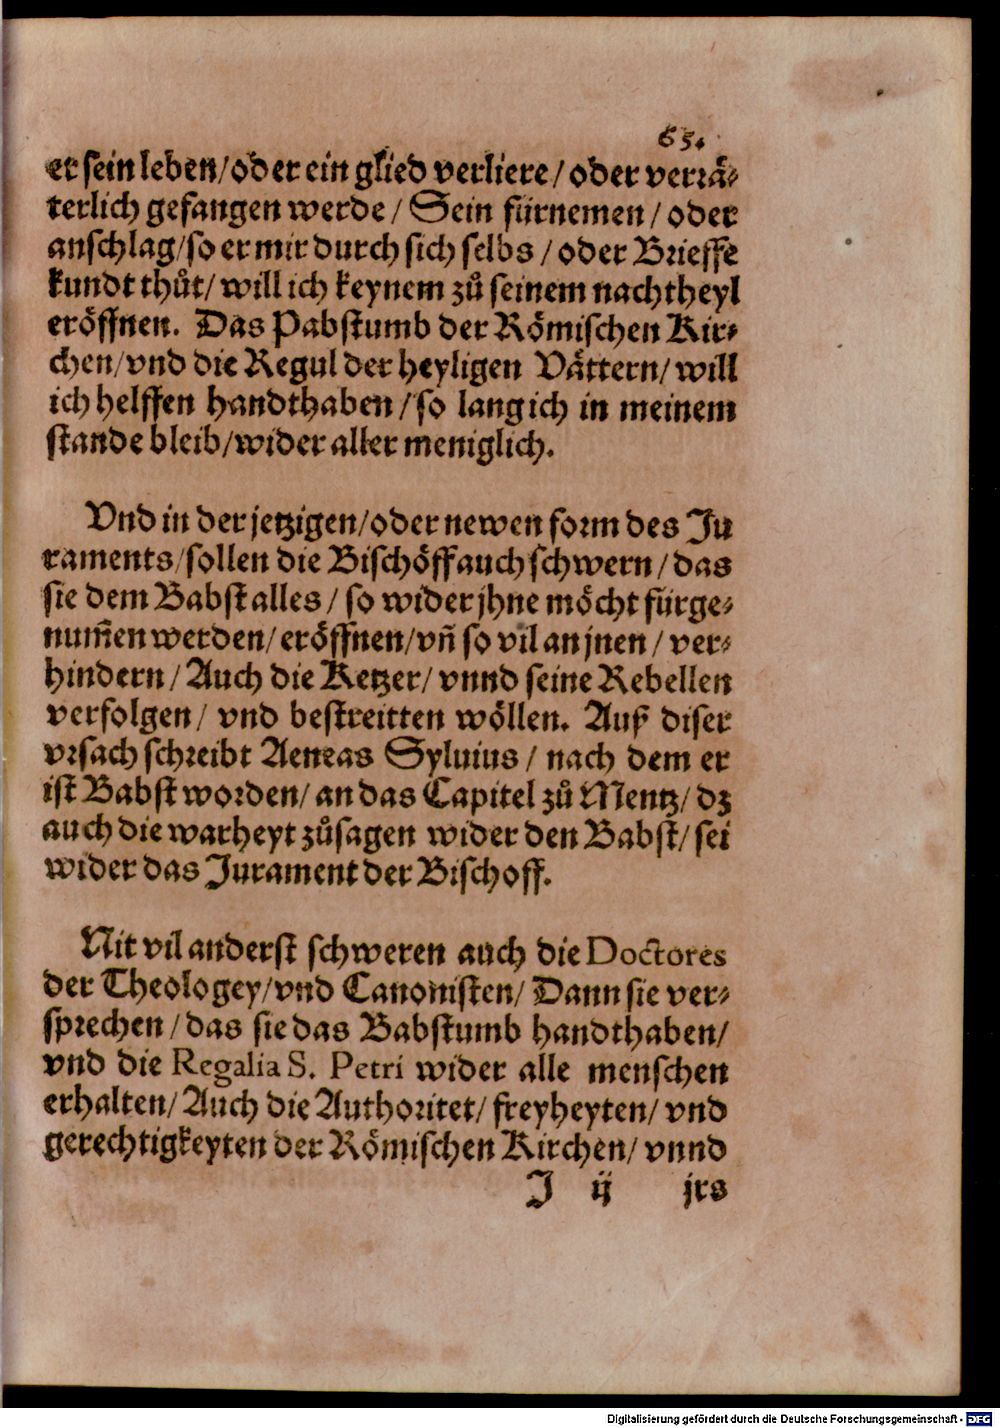 65.
er sein leben/oder ein glied verliere/oder verrä-
terlich gefangen werde/Sein fürnemen/oder
anschlag/so er mir durch sich selbs/oder Brieffe
kundt thůt/will ich keynem zů seinem nachtheyl
eröffnen. Das Pabstumb der Römischen Kir-
chen/vnd die Regul der heyligen Vättern/will
ich helffen handthaben/so lang ich in meinem
stande bleib/wider aller meniglich.
Vnd in der jetzigen/oder newen form des Ju
raments/sollen die Bischöff auch schwern/das
sie dem Babst alles/so wider jhne möcht fürge-
num̄en werden/eröffnen/vn̄ so vil an jnen/ver-
hindern/Auch die Ketzer/vnnd seine Rebellen
verfolgen/vnd bestreitten wöllen. Auß diser
vrsach schreibt Aeneas Syluius/nach dem er
ist Babst worden/an das Capitel zů Mentz/dz
auch die warheyt zůsagen wider den Babst/sei
wider das Jurament der Bischoff.
Nit vil anderst schweren auch die Doctores
der Theologey/vnd Canonisten/Dann sie ver-
sprechen/das sie das Babstumb handthaben/
vnd die Regalia S. Petri wider alle menschen
erhalten/Auch die Authoritet/freyheyten/vnd
gerechtigkeyten der Römischen Kirchen/vnnd
J ij jrs
Digitalisierung gefördert durch die Deutsche Forschungsgemeinschaft - DFG